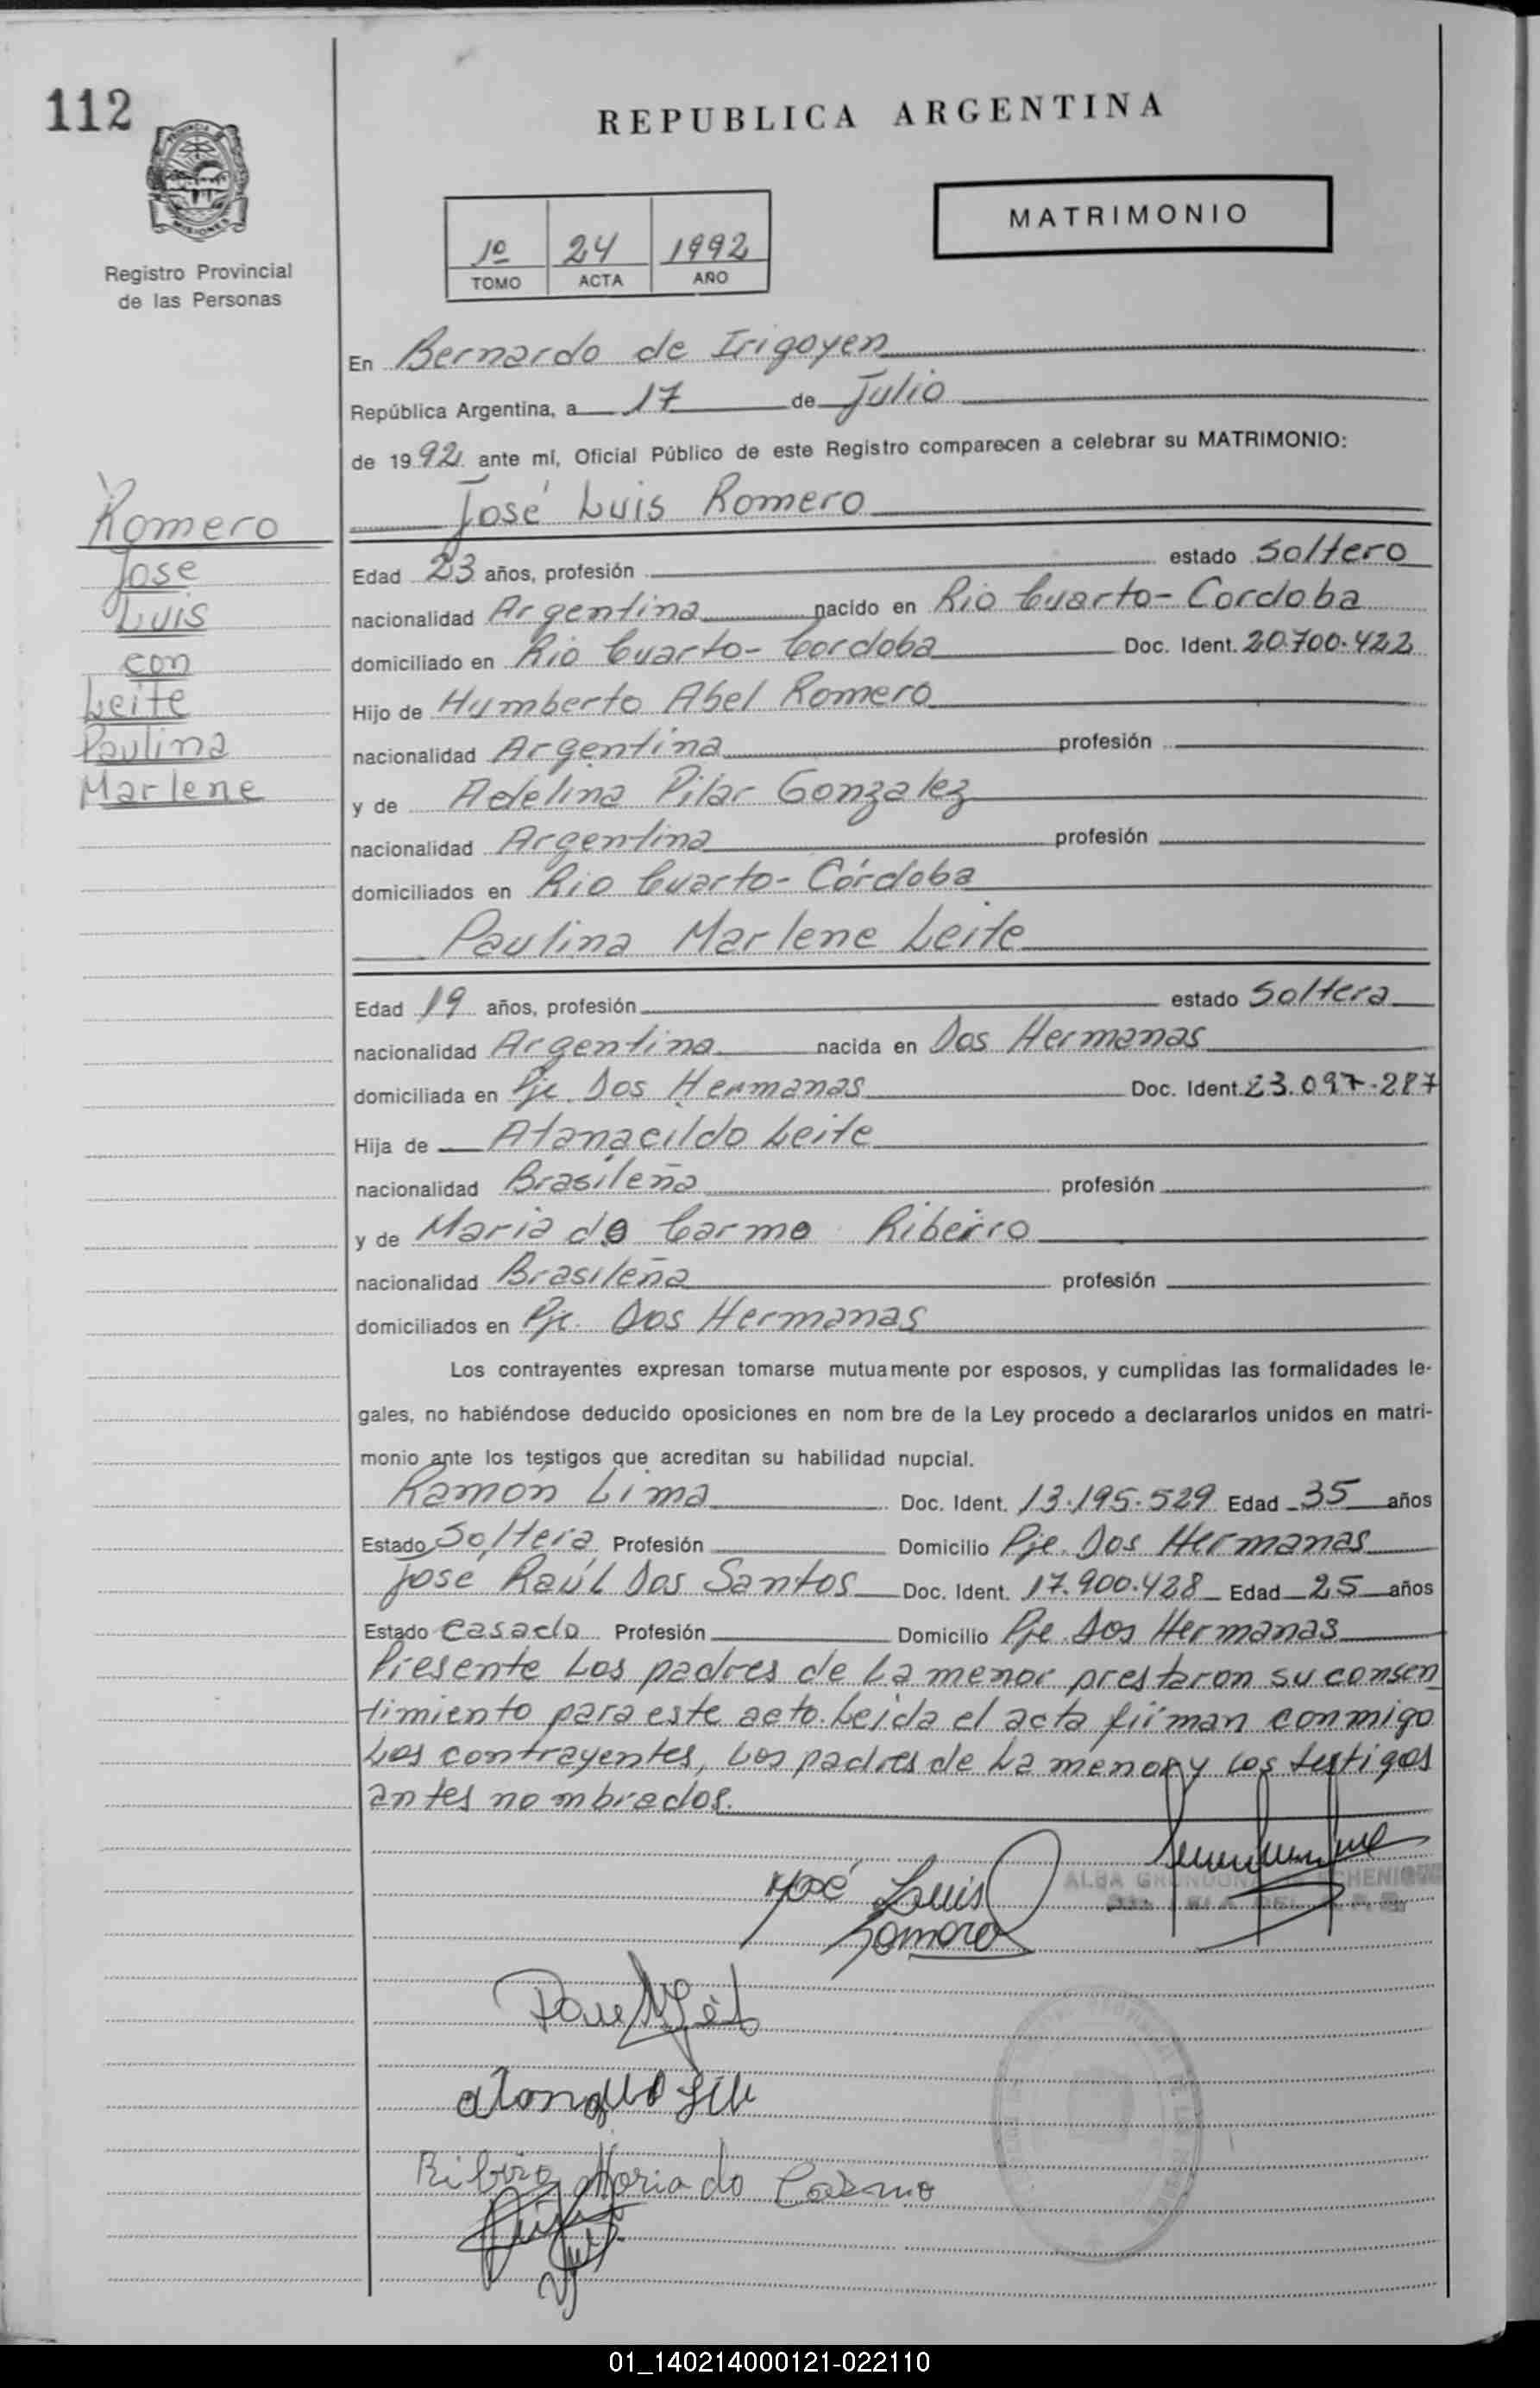 112
REPUBLICA ARGENTINA
MATRIMONIO
MISIONES
Registro Provincial
de las Personas
1º 24 1992
TOMO ACTA AÑO
En Bernardo de Irigoyen
República Argentina, a 17 de Julio
de 1992 ante mí, Oficial Público de este Registro comparecen a celebrar su MATRIMONIO:
Romero
Jose
Luis
con
Leite
Paulina
Marlene
José Luis Romero
Edad 23 años, profesión estado Soltero
nacionalidad Argentina nacido en Rio Cuarto - Cordoba
domiciliado en Rio Cuarto - Cordoba Doc. Ident. 20.700.422
Hijo de Humberto Abel Romero
nacionalidad Argentina profesión
y de Adelina Pilar Gonzalez
nacionalidad Argentina profesión
domiciliados en Rio Cuarto - Córdoba
Paulina Marlene Leite
Edad 19 años, profesión estado Soltera
nacionalidad Argentina nacida en Dos Hermanas
domiciliada en Pje. Dos Hermanas Doc. Ident. 23.097.287
Hija de Atanacildo Leite
nacionalidad Brasileña profesión
y de Maria do Carmo Ribeiro
nacionalidad Brasileña profesión
domiciliados en Pje. Dos Hermanas
Los contrayentes expresan tomarse mutuamente por esposos, y cumplidas las formalidades le-
gales, no habiéndose deducido oposiciones en nom bre de la Ley procedo a declararlos unidos en matri-
monio ante los testigos que acreditan su habilidad nupcial.
Ramón Lima Doc. Ident. 13.195.529 Edad 35 años
Estado Soltera Profesión Domicilio Pje. Dos Hermanas
José Raúl Dos Santos Doc. Ident. 17.900.428 Edad 25 años
Estado Casado Profesión Domicilio Pje. Dos Hermanas
Presente Los padres de La menor prestaron su consen
timiento para este acto. Leida el acta firman conmigo
Los contrayentes, Los padres de La menor y Los testigos
antes nombrados.
ALBA
José Luis
Romero
Ribeiro Maria do Carmo
01_140214000121-022110